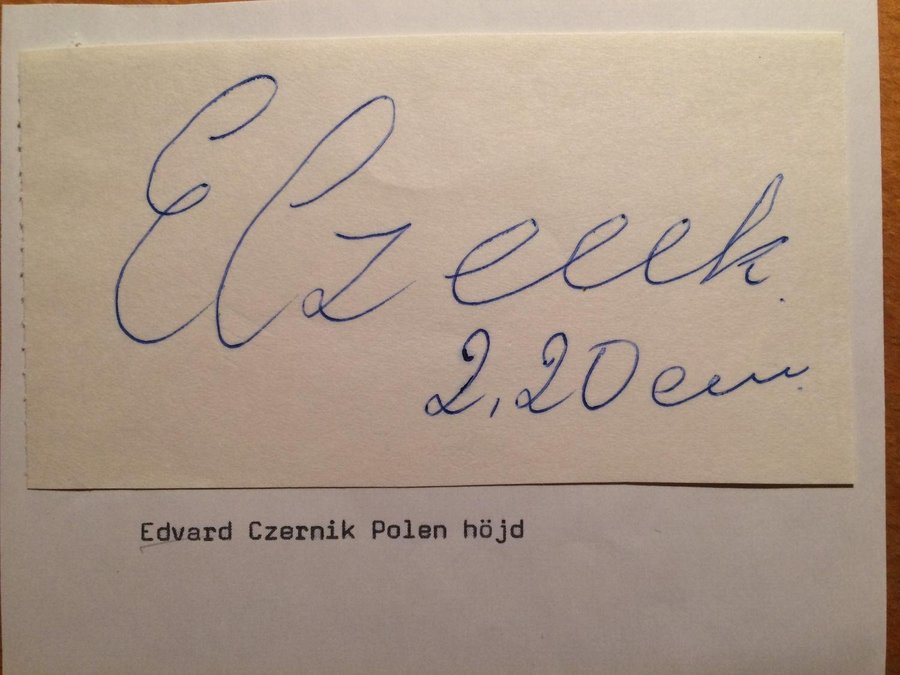 E Czernik
2,20 cm
Edvard Czernik Polen höjd